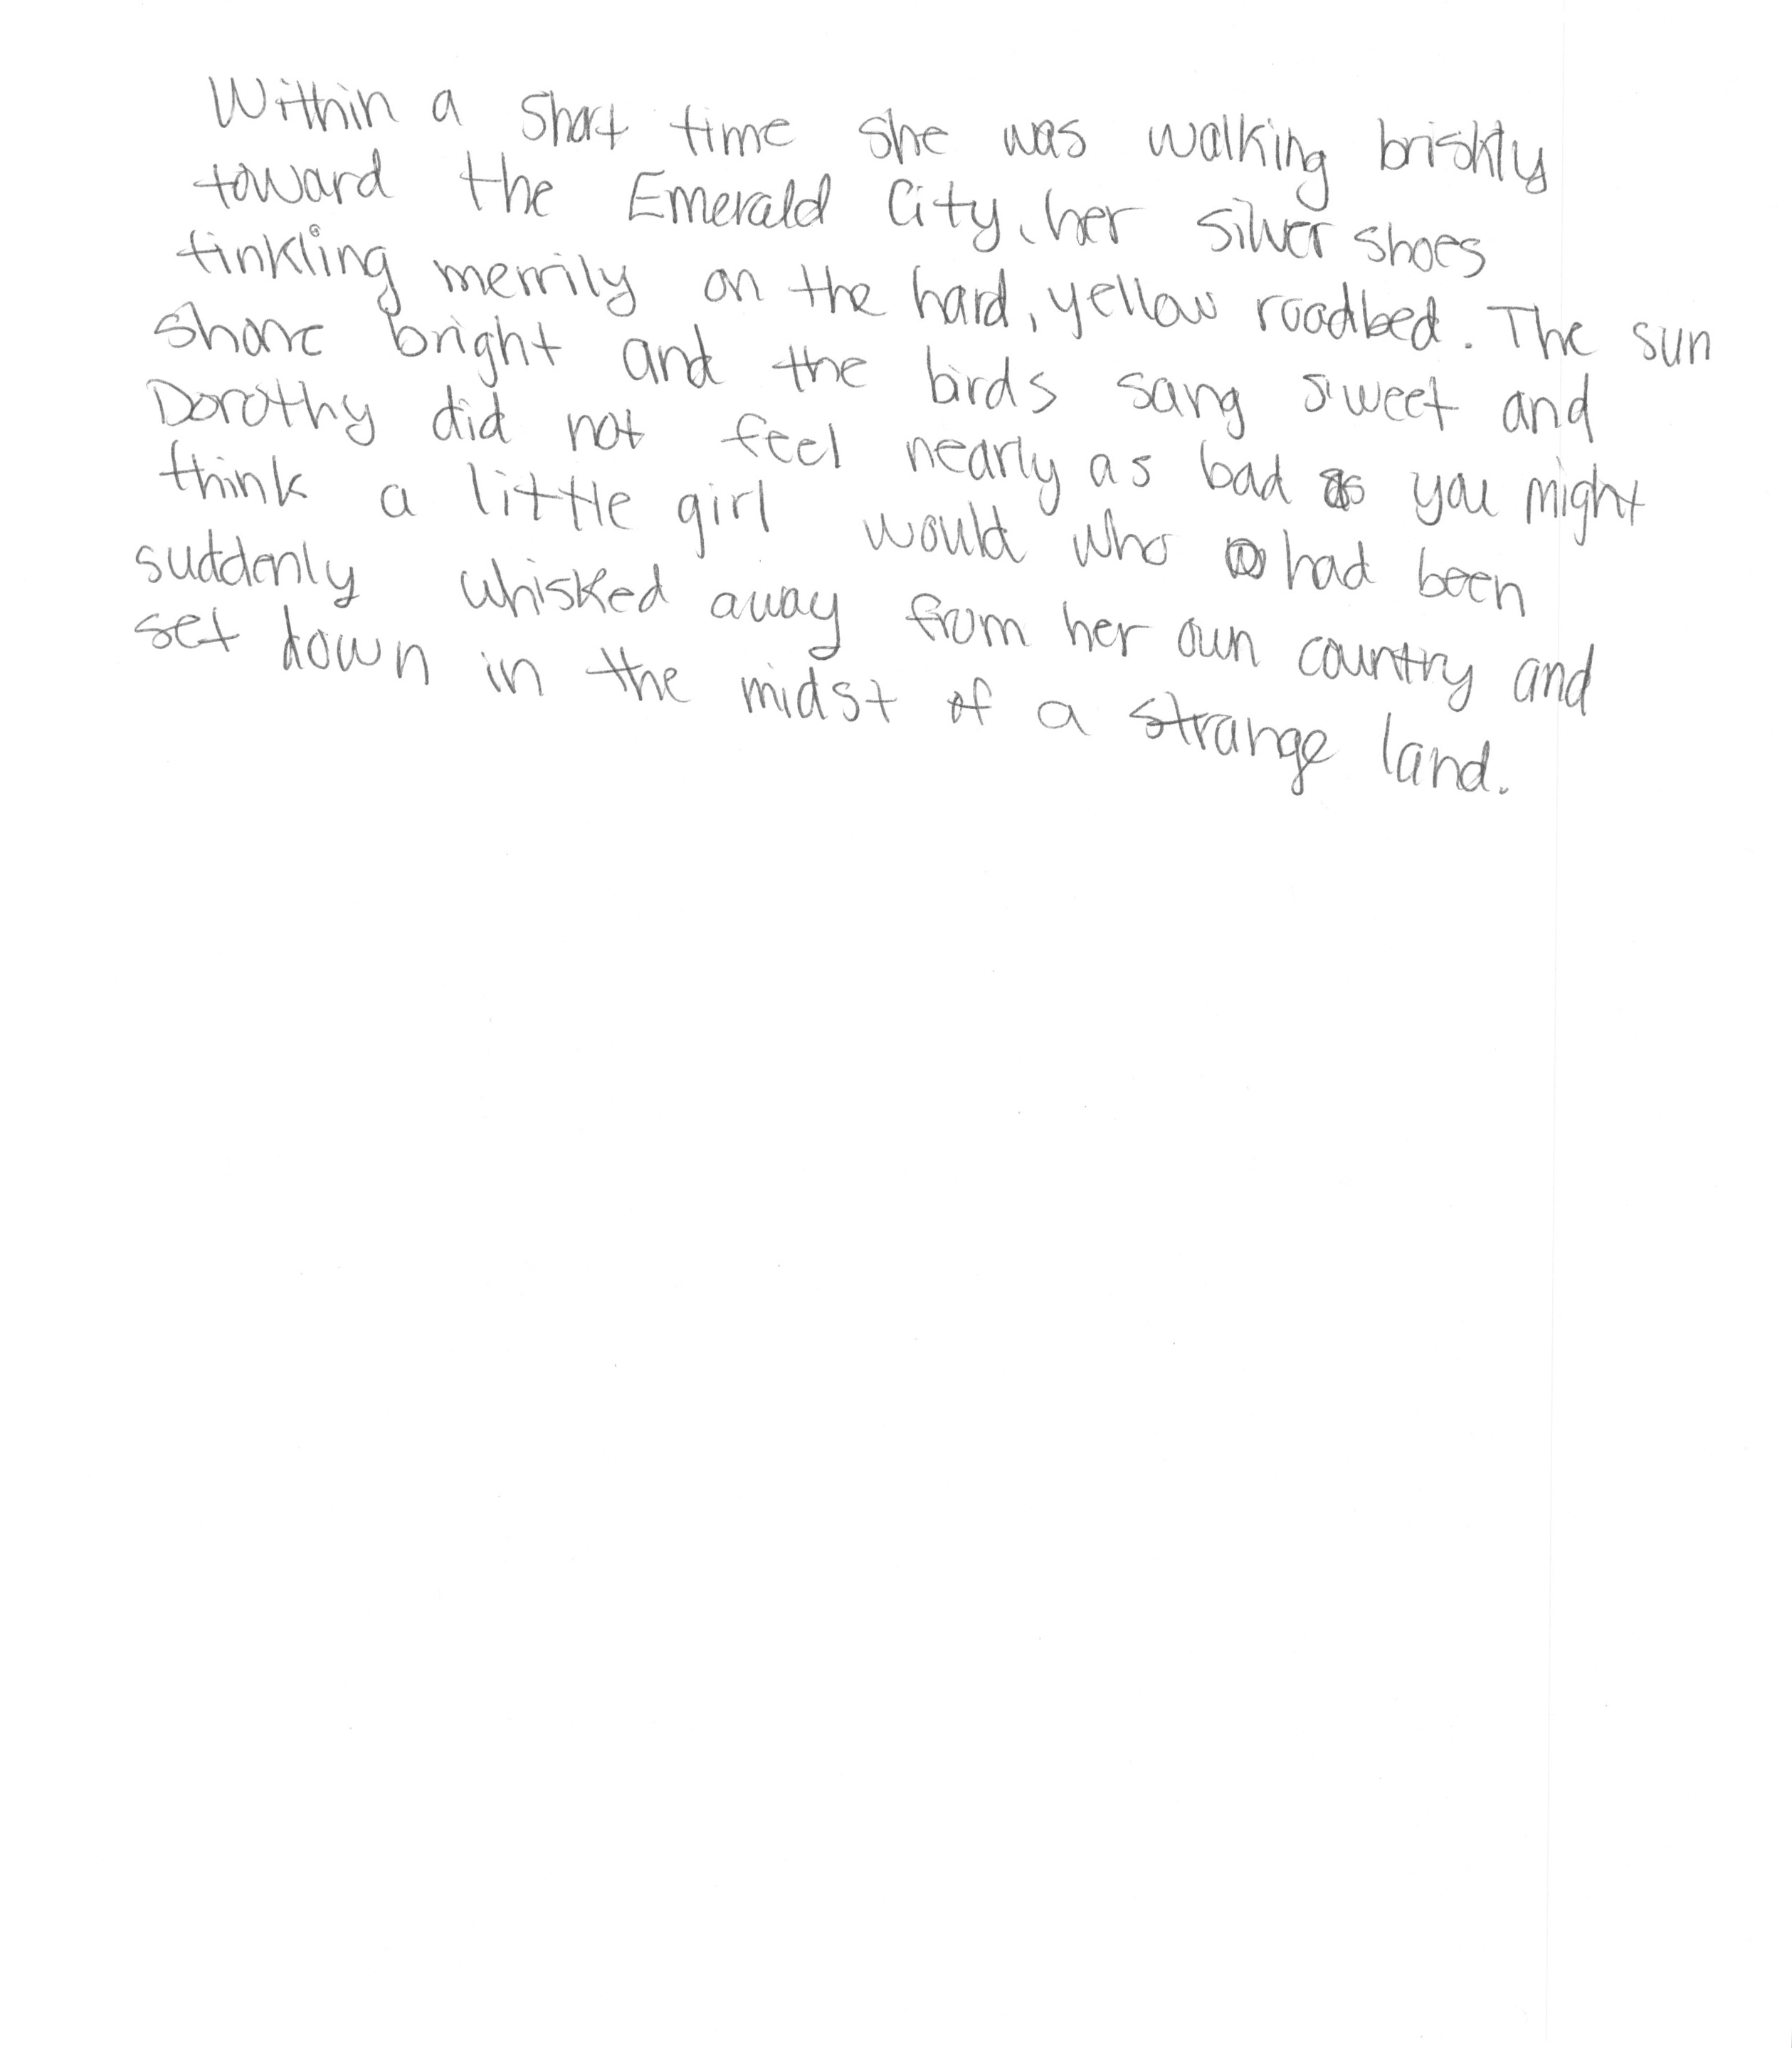 Within a short time she was walking briskly
toward the Emerald City, her silver shoes
tinkling merrily on the hard, yellow roadbed. The sun
shone bright and the birds sang sweet and
Dorothy did not feel nearly as bad as you might
think a little girl would who had been
suddenly whisked away from her own country and
set down in the midst of a strange land.